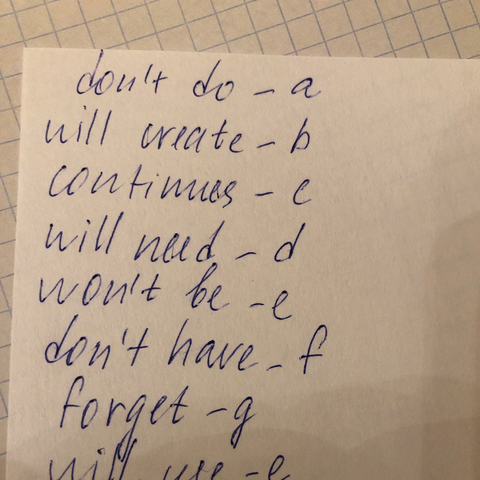 don't do - a
will create - b
continues - c
will need - d
won't be - e
don't have - f
forget - g
will use - e